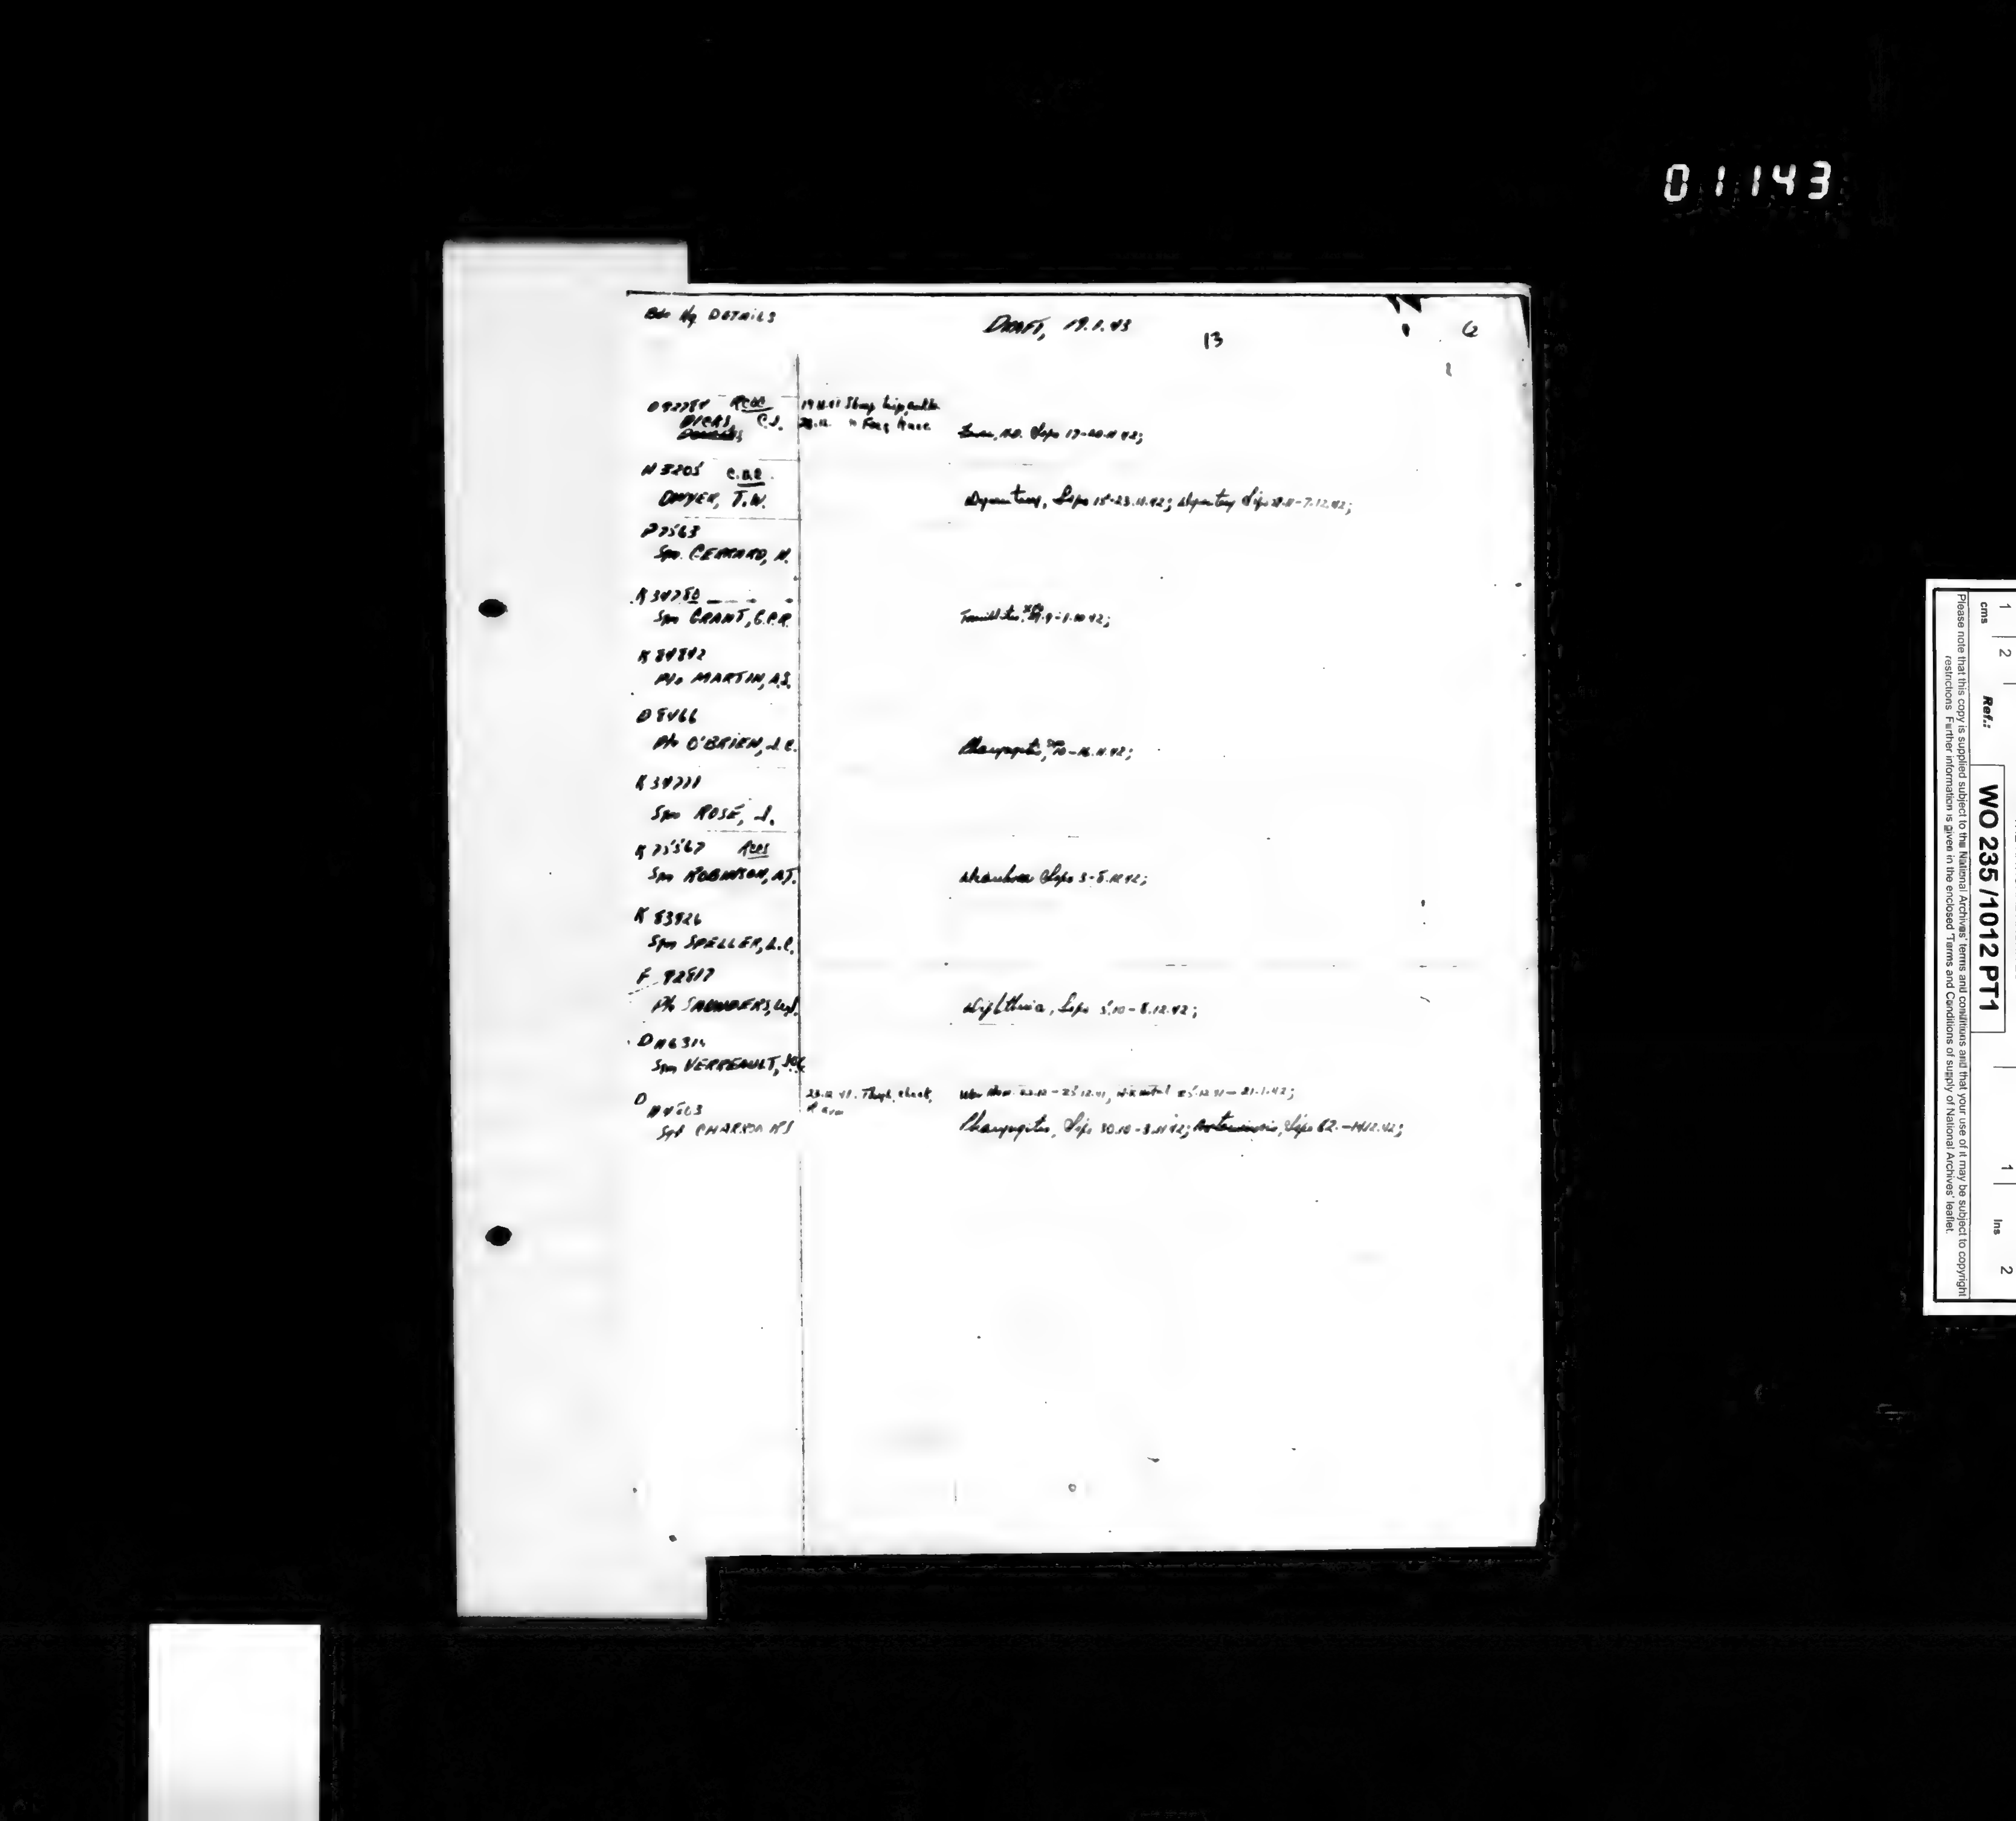 01143
Bde Hq DETAILS
DRAFT, 19.1.43
13
6
D92784 RCOC
DICKS, C.J.
19.12.41 Shrap hip,
17-20.11.42;
N 3205 C.D.C.
DWYER, T.W.
Dysentery, Sspo 15-23.11.42; Dysentery Sspo -7.12.42;
P7563
Spr. GERRARD, H.
K34780
Spr GRANT, G.P.R.
Tonsillitis, -1.10.42;
K 84842
Pte MARTIN, A.S.
D 8466
Pte O'BRIEN, J.C.
Pharyngitis, 10-16.11.42;
K34771
Spr ROSE, J.
K75567 RCCS
Spr ROBINSON, A.J.
Diarrhoea Sspo 3-5.12.42;
K 83926
Spr SPELLER, L.C.
F 92817
Pte SAUNDERS, W.J.
Diphtheria, Sspo 5.10-8.12.42;
D116314
Spr VERREAULT,
D
H4503
Sgt CHARRON
23.12.41. Thigh, chest,
R arm
War Mem 23.12-25.12.41, 25.12.41-21.1.42;
Pharyngitis, Sspo 30.10-3.11.42; Sspo -14.12.42;
1 2
cms
Ref.:
WO 235 /1012 PT1
1 Ins 2
Please note that this copy is supplied subject to the National Archives' terms and conditions and that your use of it may be subject to copyright
restrictions. Further information is given in the enclosed 'Terms and Conditions of supply of National Archives' leaflet.